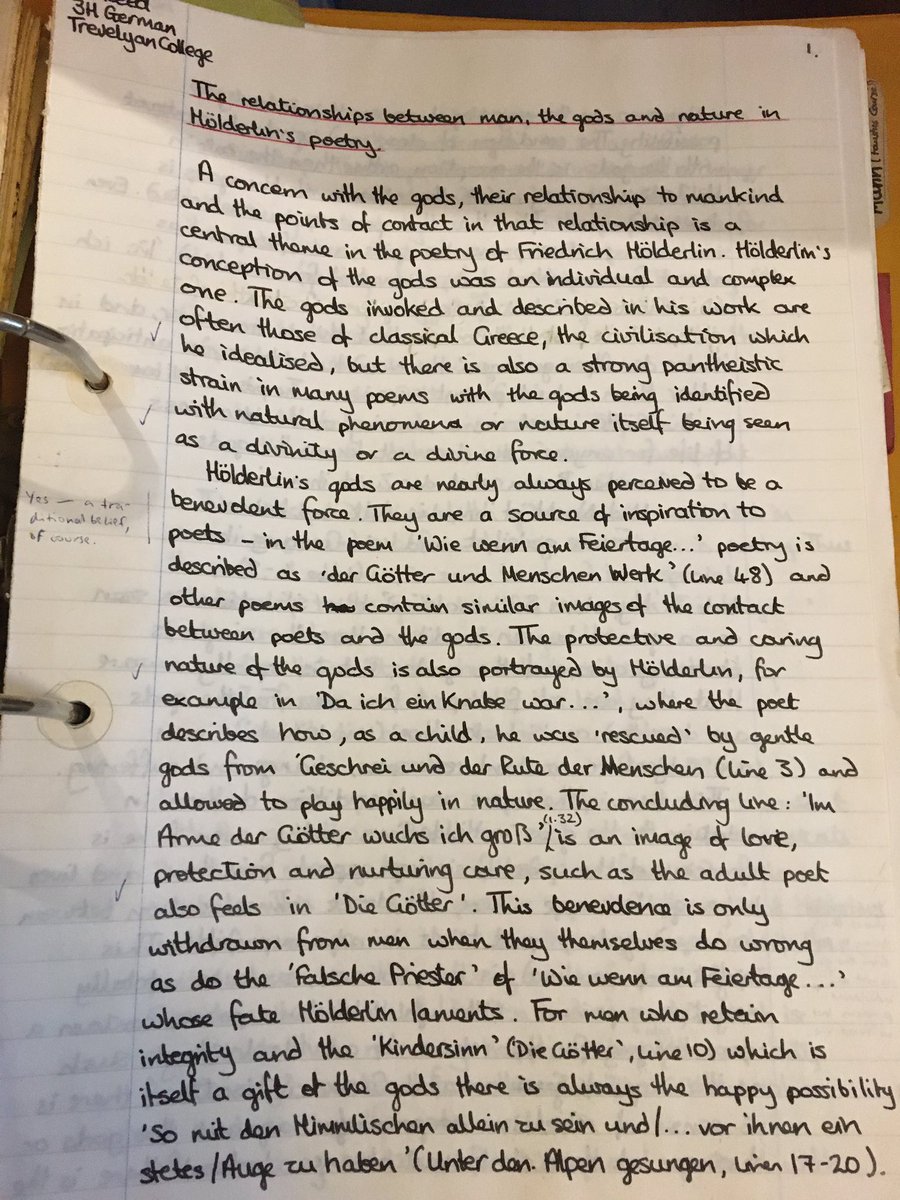 3H German
Trevelyan College
1.
The relationships between man, the gods and nature in
Hölderlin's poetry.
A concern with the gods, their relationship to mankind
and the points of contact in that relationship is a
central theme in the poetry of Friedrich Hölderlin. Hölderlin's
conception of the gods was an individual and complex
one. The gods invoked and described in his work are
often those of classical Greece, the civilisation which
he idealised, but there is also a strong pantheistic
strain in many poems with the gods being identified
with natural phenomena or nature itself being seen
as a divinity or a divine force.
Hölderlin's gods are nearly always perceived to be a
benevolent force. They are a source of inspiration to
poets – in the poem 'Wie wenn am Feiertage...' poetry is
described as 'der Götter und Menschen Werk' (line 48) and
other poems contain similar images of the contact
between poets and the gods. The protective and caring
nature of the gods is also portrayed by Hölderlin, for
example in 'Da ich ein Knabe war...', where the poet
describes how, as a child, he was 'rescued' by gentle
gods from 'Geschrei und der Rute der Menschen (line 3) and
allowed to play happily in nature. The concluding line: 'Im
Arme der Götter wuchs ich groß' (l.32) is an image of love,
protection and nurturing care, such as the adult poet
also feels in 'Die Götter'. This benevolence is only
withdrawn from men when they themselves do wrong
as do the 'Falsche Priester' of 'Wie wenn am Feiertage...'
whose fate Hölderlin laments. For men who retain
integrity and the 'Kindersinn' (Die Götter', line 10) which is
itself a gift of the gods there is always the happy possibility
'So mit den Himmlischen allein zu sein und/... vor ihnen ein
stetes/Auge zu haben' (Unter den. Alpen gesungen, lines 17-20).
Yes – a tra-
ditional belief,
of course.